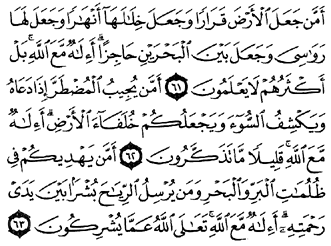 أَمَّن جَعَلَ ٱلْأَرْضَ قَرَارًا وَجَعَلَ خِلَٰلَهَآ أَنْهَٰرًا وَجَعَلَ لَهَا
رَوَٰسِىَ وَجَعَلَ بَيْنَ ٱلْبَحْرَيْنِ حَاجِزًا ۗ أَءِلَٰهٌ مَّعَ ٱللَّهِ ۚ بَلْ
أَكْثَرُهُمْ لَا يَعْلَمُونَ ٦١ أَمَّن يُجِيبُ ٱلْمُضْطَرَّ إِذَا دَعَاهُ
وَيَكْشِفُ ٱلسُّوٓءَ وَيَجْعَلُكُمْ خُلَفَآءَ ٱلْأَرْضِ ۗ أَءِلَٰهٌ
مَّعَ ٱللَّهِ ۚ قَلِيلًا مَّا تَذَكَّرُونَ ٦٢ أَمَّن يَهْدِيكُمْ فِى
ظُلُمَٰتِ ٱلْبَرِّ وَٱلْبَحْرِ وَمَن يُرْسِلُ ٱلرِّيَٰحَ بُشْرًۢا بَيْنَ يَدَىْ
رَحْمَتِهِۦٓ ۗ أَءِلَٰهٌ مَّعَ ٱللَّهِ ۚ تَعَٰلَى ٱللَّهُ عَمَّا يُشْرِكُونَ ٦٣